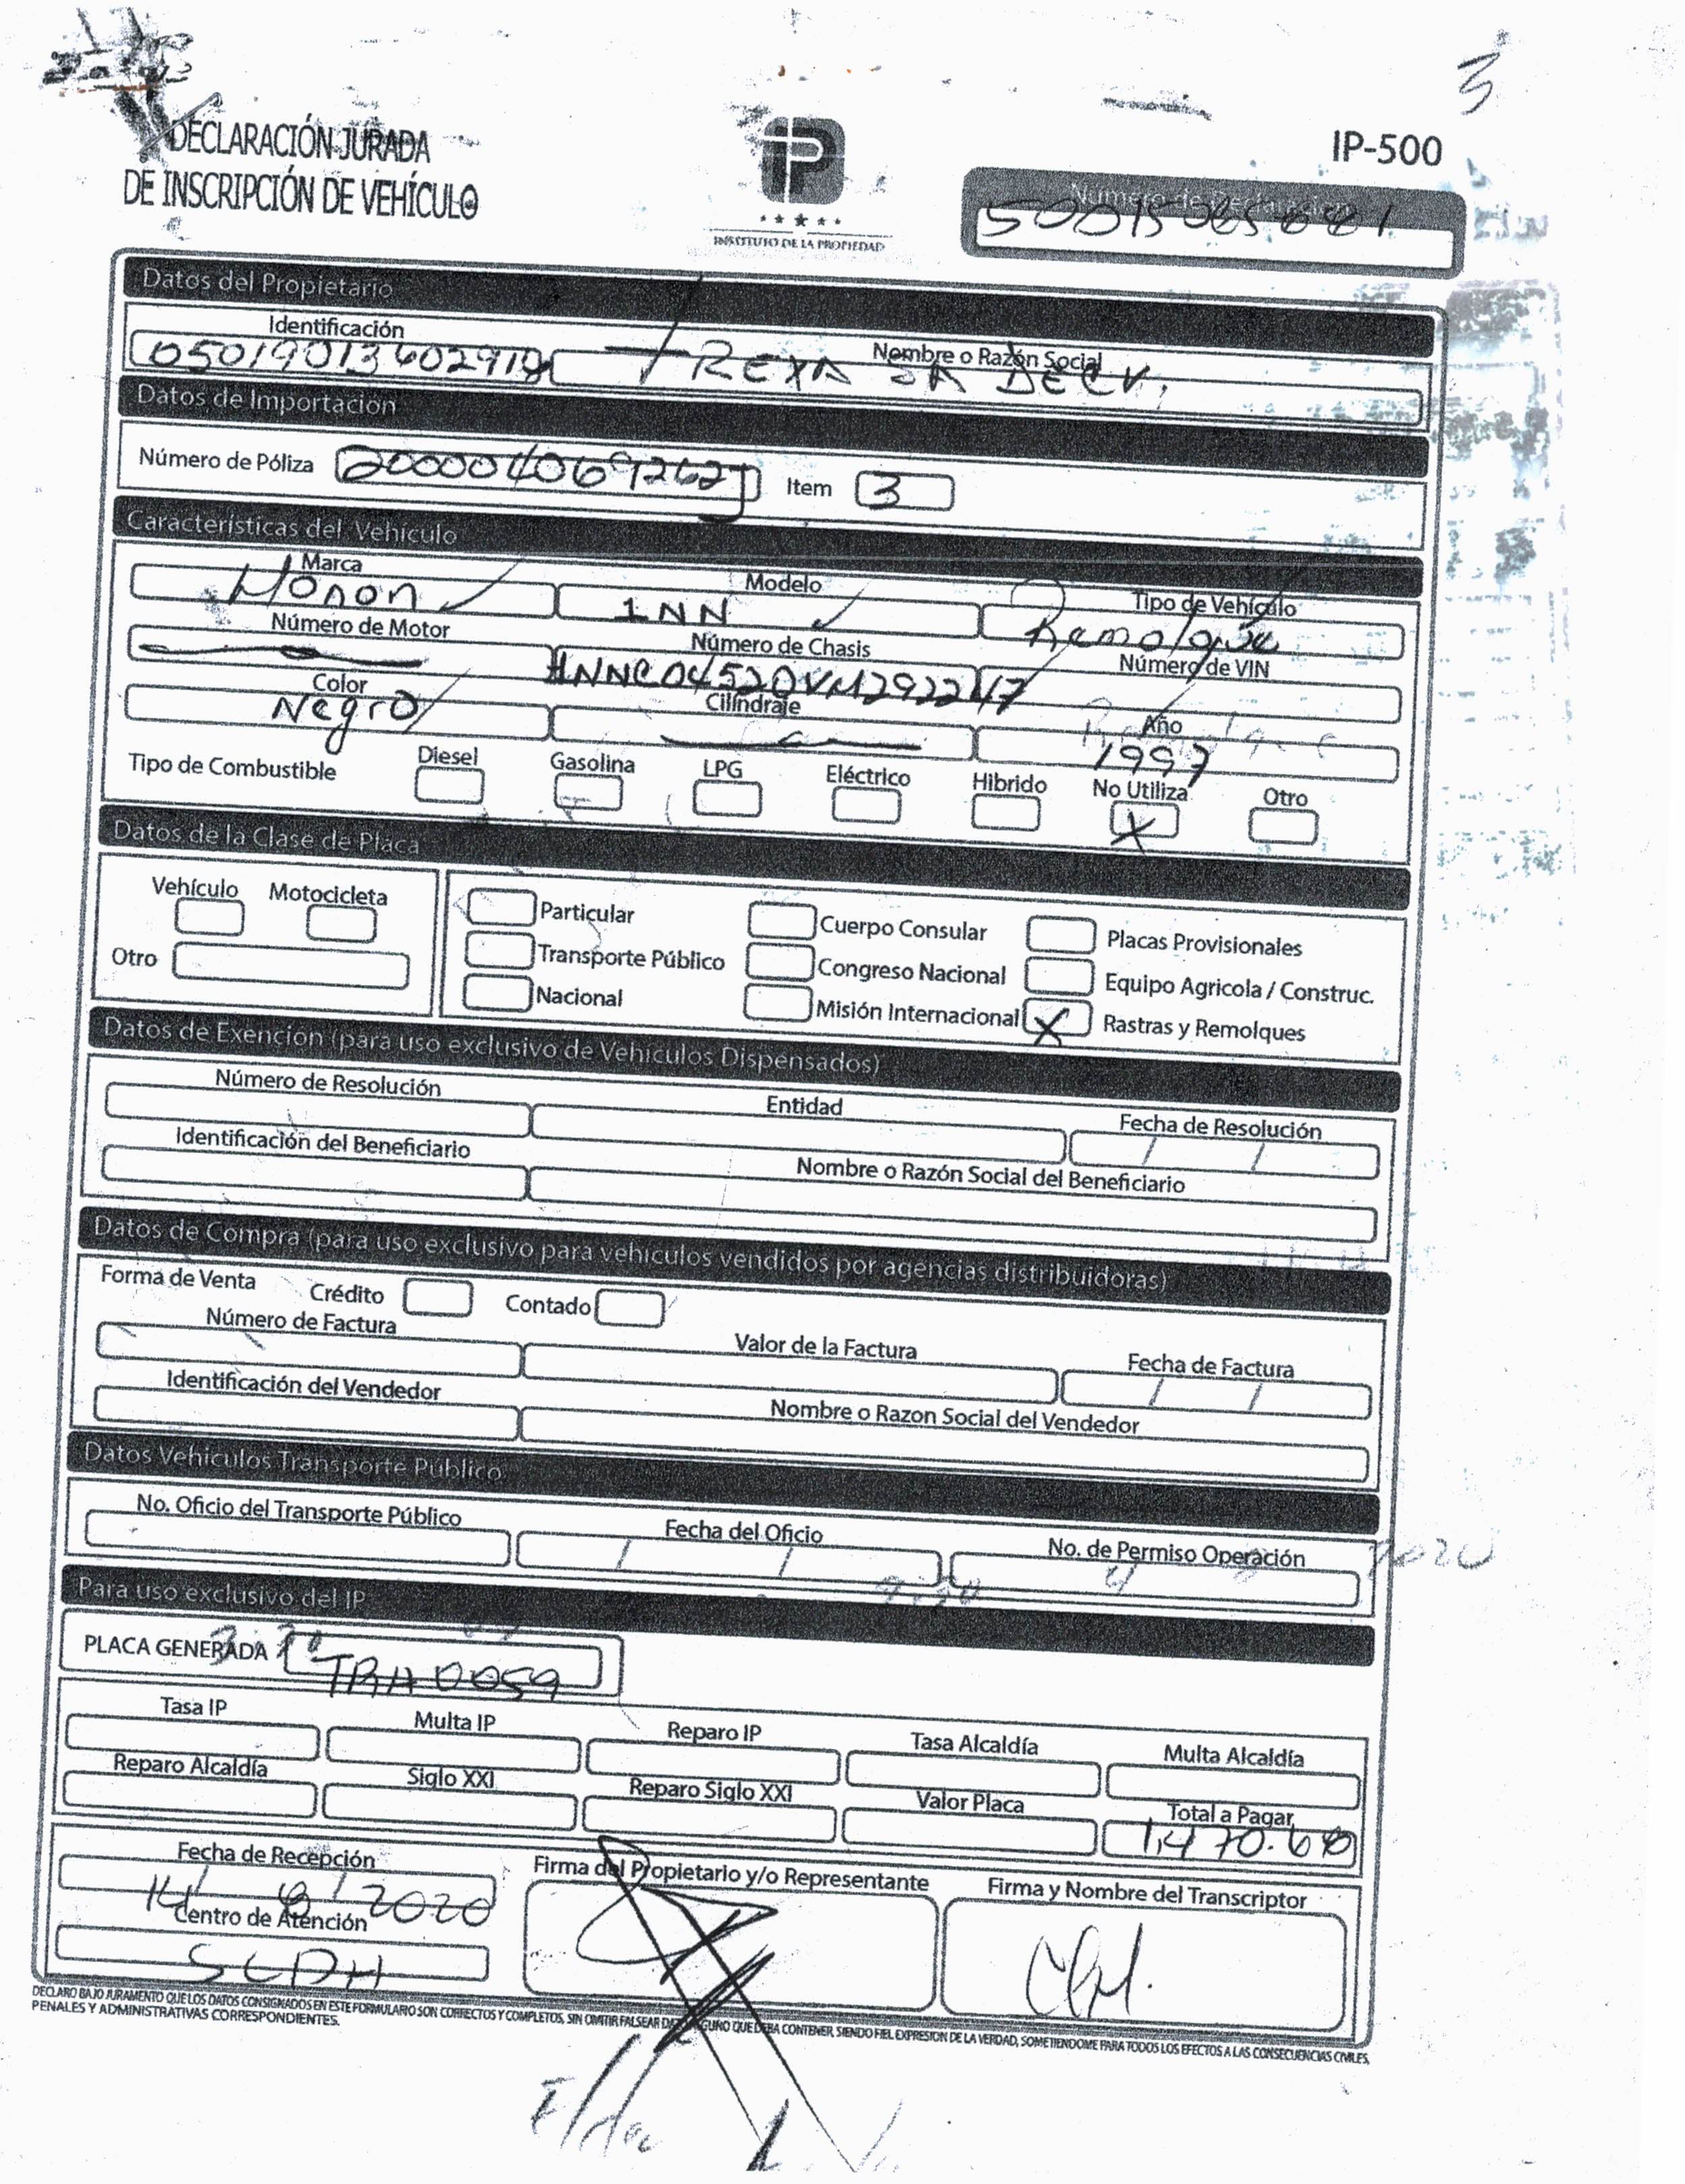 3
DECLARACIÓN JURADA
DE INSCRIPCIÓN DE VEHÍCULO
IP
INSTITUTO DE LA PROPIEDAD
IP-500
Datos del Propietario
Identificación
Nombre o Razón Social
REXA SA DE CV.
Datos de Importación
Número de Póliza
Item 3
Características del Vehículo
Marca Modelo Tipo de Vehículo
Monon 1NN Remolque
Número de Motor Número de Chasis Número de VIN
Color Cilindraje Año
Negro 1997
Tipo de Combustible Diesel Gasolina LPG Eléctrico Hibrido No Utiliza Otro
X
Datos de la Clase de Placa
Vehículo Motocicleta
Otro
Particular Cuerpo Consular Placas Provisionales
Transporte Público Congreso Nacional Equipo Agricola / Construc.
Nacional Misión Internacional X Rastras y Remolques
Datos de Exención (para uso exclusivo de Vehículos Dispensados)
Número de Resolución Entidad Fecha de Resolución
/ /
Identificación del Beneficiario Nombre o Razón Social del Beneficiario
Datos de Compra (para uso exclusivo para vehículos vendidos por agencias distribuidoras)
Forma de Venta Crédito Contado
Número de Factura Valor de la Factura Fecha de Factura
/ /
Identificación del Vendedor Nombre o Razon Social del Vendedor
Datos Vehículos Transporte Público
No. Oficio del Transporte Público Fecha del Oficio No. de Permiso Operación
/ /
Para uso exclusivo del IP
PLACA GENERADA
Tasa IP Multa IP Reparo IP Tasa Alcaldía Multa Alcaldía
Reparo Alcaldía Siglo XXI Reparo Siglo XXI Valor Placa Total a Pagar
Fecha de Recepción Firma del Propietario y/o Representante Firma y Nombre del Transcriptor
14 / 8 / 2020
Centro de Atención
DECLARO BAJO JURAMENTO QUE LOS DATOS CONSIGNADOS EN ESTE FORMULARIO SON CORRECTOS Y COMPLETOS, SIN OMITIR FALSEAR DATO ALGUNO QUE DEBA CONTENER, SIENDO FIEL EXPRESION DE LA VERDAD, SOMETIENDOME PARA TODOS LOS EFECTOS A LAS CONSECUENCIAS CIVILES,
PENALES Y ADMINISTRATIVAS CORRESPONDIENTES.